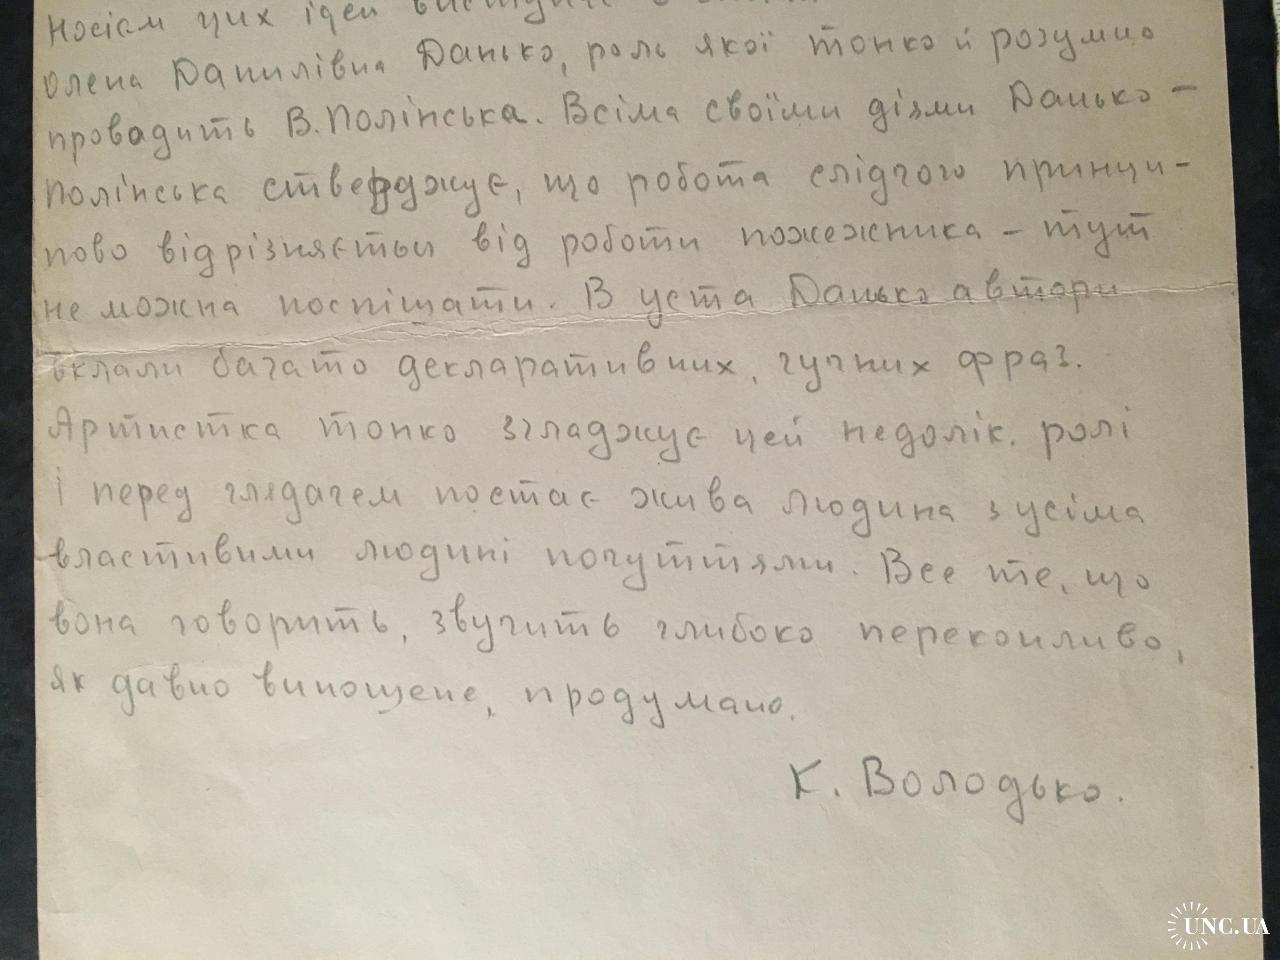 Носієм цих ідей
Олена Данилівна Данько, роль якої тонко й розумно
провадить В. Полінська. Всіма своїми діями Данько –
Полінська стверджує, що робота слідчого принци-
пово відрізняється від роботи пожежника – тут
не можна поспішати. В уста Данько автори
вклали багато декларативних, гучних фраз.
Артистка тонко згладжує цей недолік. ролі
і перед глядачем постає жива людина з усіма
властивими людині почуттями. Все те, що
вона говорить, звучить глибоко переконливо,
як давно виношене, продумано.
К. Володько.
UNC.UA